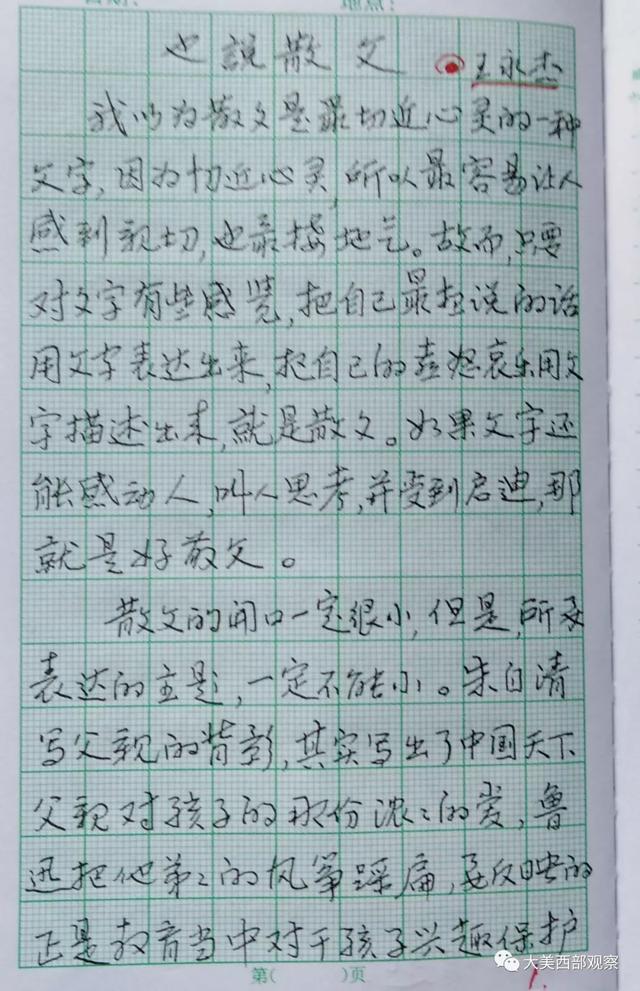 日期: 地点:
也説散文 王永杰
我以为散文是最切近心灵的一种
文字,因为切近心灵,所以最容易让人
感到親切,也最接地气。故而,只要
对文字有些感觉,把自己最想说的话
用文字表达出来,把自己的喜怒哀乐用文
字描述出来,就是散文。如果文字还
能感动人,叫人思考,并受到启迪,那
就是好散文。
散文的开口一定很小,但是,所要
表达的主题,一定不能小。朱自清
写父親的背影,其实写出了中国天下
父親对孩子的那份浓々的爱,鲁
迅把他弟々的风筝踩扁,要反映的
正是教育当中对于孩子兴趣保护
第( )页
1.
大美西部观察